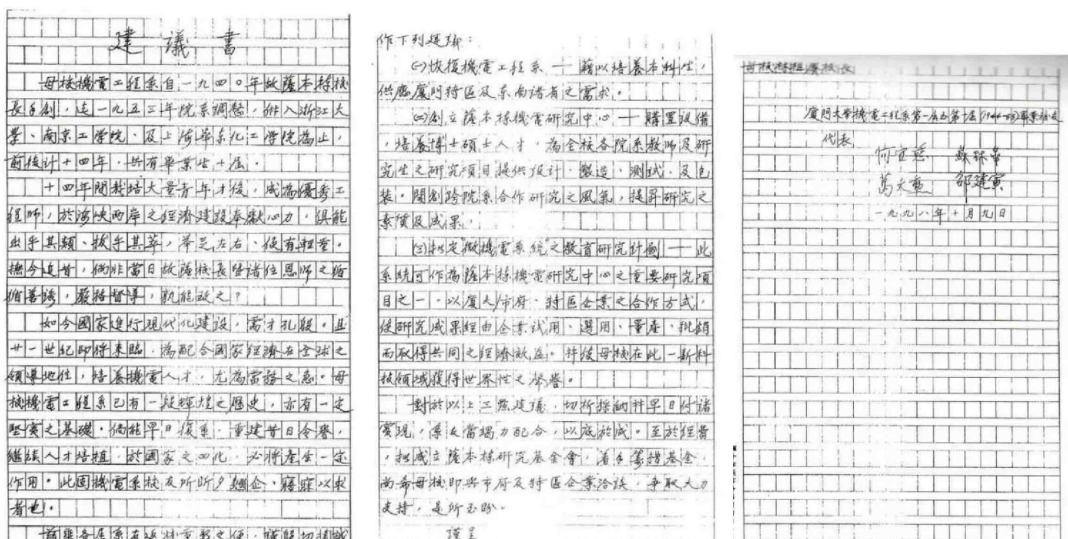 建議書
母校機電工程系自一九四〇年故薩本棟校
長手創，迄一九五三年院系調整，併入浙江大
學、南京工學院、及上海華東化工學院為止，
前後計十四年，共有畢業生十屆。
十四年間栽培大量青年才俊，成為優秀工
程師，於海峽兩岸之經濟建設奉獻心力，俱能
出乎其類、拔乎其萃，舉足左右，便有輕重。
撫今追昔，倘非當日故薩校長暨諸位恩師之循
循善誘，嚴格督導，孰能致之？
如今國家進行現代化建設，需才孔殷。且
廿一世紀即將來臨，為配合國家經濟在全球之
領導地位，培養機電人才，尤為當務之急。母
校機電工程系已有一段輝煌之歷史，亦有一定
堅實之基礎。倘能早日復系，重建昔日令譽，
繼續人才培植，於國家之四化，必將產生一定
作用。此固機電系校友所
者也。
作下列建議：
㈠恢復機電工程系——藉以培養本科生，
供應廈門特區及東南諸省之需求。
㈡創立薩本棟機電研究中心——購置設備
，培養博士碩士人才，為全校各院系教師及研
究生之研究項目提供設計、製造、測試、及包
裝。開創跨院系合作研究之風氣，提昇研究之
素質及成果。
㈢擬定微機電系統之教育研究計劃——此
系統可作為薩本棟機電研究中心之重要研究項
目之一，以廈大、市府、特區企業之合作方式，
使研究成果經由企業試用、選用、量產、批銷
而取得共同之經濟效益。并使母校在此一新科
技領域獲得世界性之聲譽。
對於以上三點建議，切祈採納并早日付諸
實現，系友當竭力配合，以底於成。至於經費
，擬成立薩本棟研究基金會，着手籌措基金，
尚希母校即與市府及特區企業洽談，爭取大力
支持，是所至盼。
謹呈
廈門大學機電工程系第一屆至第十屆畢業校友
代表
何宜慈
葛文勳 邵建寅
一九九八年十月九日